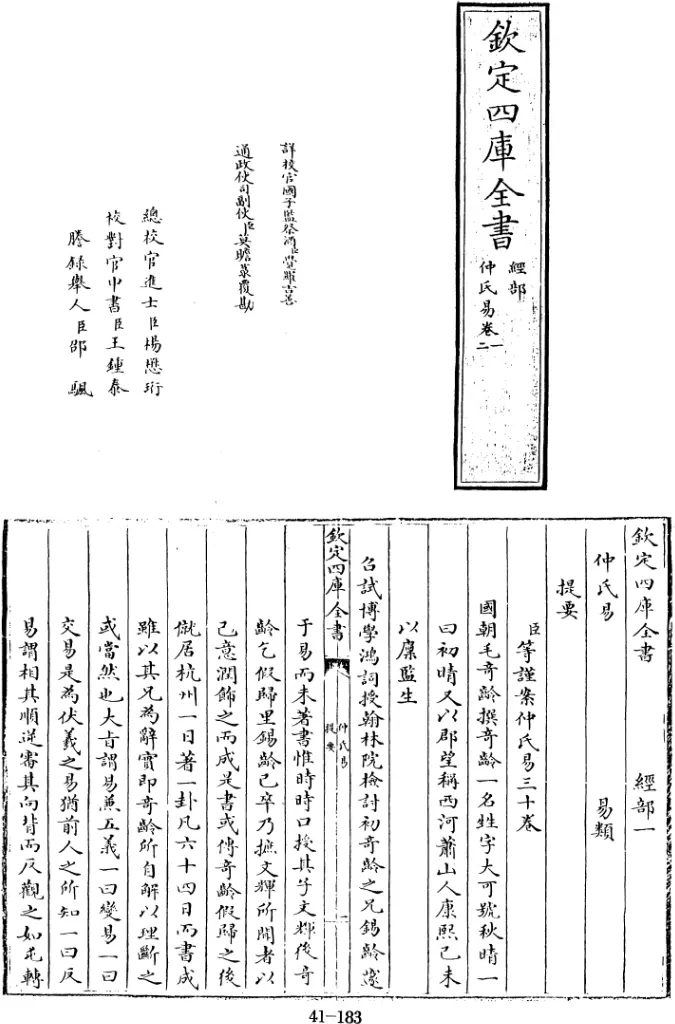 欽定四庫全書
經部
仲氏易卷一二
詳校官國子監祭酒臣覺羅吉善
通政使司副使臣莫瞻菉覆勘
總校官進士臣楊懋珩
校對官中書臣王鍾泰
謄錄舉人臣邵颿
欽定四庫全書 經部一
仲氏易 易類
提要
臣等謹案仲氏易三十卷
國朝毛奇齡撰奇齡一名甡字大可號秋晴一
曰初晴又以郡望稱西河蕭山人康熙己未
以廩監生
召試博學鴻詞授翰林院檢討初奇齡之兄錫齡邃
欽定四庫全書 仲氏易 提要 一
于易而未著書惟時時口授其子文輝後奇
齡乞假歸里錫齡已卒乃摭文輝所聞者以
己意潤飾之而成是書或傳奇齡假歸之後
僦居杭州一日著一卦凡六十四日而書成
雖以其兄為辭實即奇齡所自解以理斷之
或當然也大旨謂易兼五義一曰變易一曰
交易是為伏羲之易猶前人之所知一曰反
易謂相其順逆審其向背而反觀之如屯轉
41-183